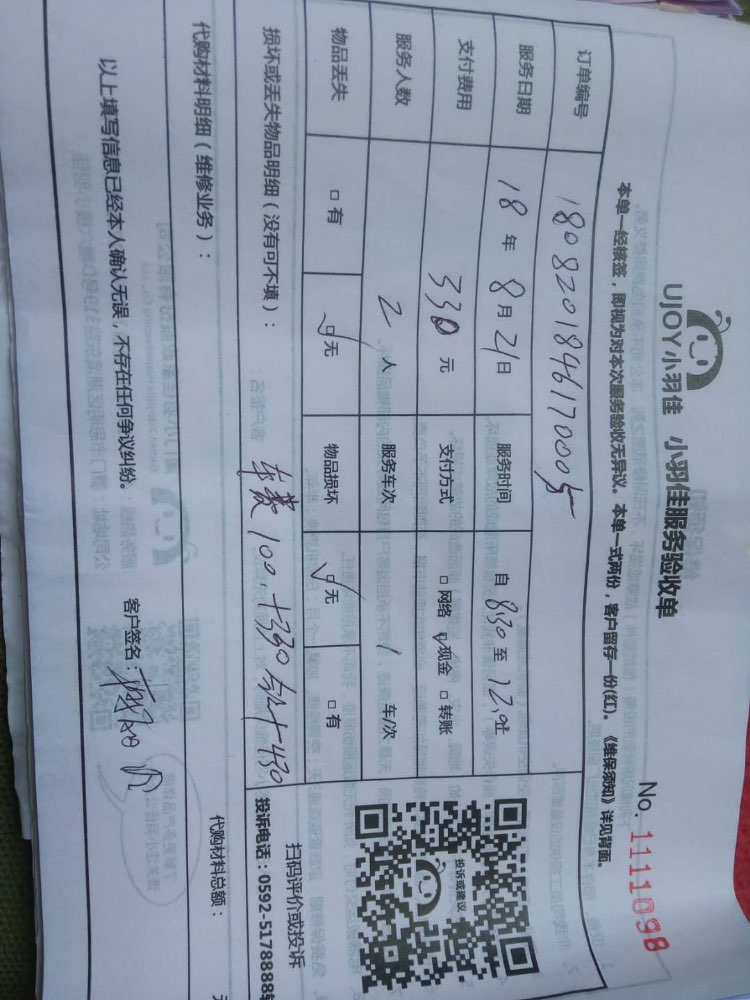 UJOY小羽佳 小羽佳服务验收单
No. 1111098
本单一经核签，即视为对本次服务验收无异议。本单一式两份，客户留存一份(红)。《维保须知》详见背面。
订单编号 180820184617000
服务日期 18 年 8 月 21 日 服务时间 自 8:30 至 12
支付费用 330 元 支付方式 □ 网络 ☑ 现金 □ 转账
服务人数 2 人 服务车次 1 车/次
物品丢失 □ 有 ☑ 无 物品损坏 ☑ 无 □ 有
投诉或建议
扫码评价或投诉
投诉电话：0592-5178888转
损坏或丢失物品明细（没有可不填）：
车费 100.+330 430
代购材料明细（维修业务）：
代购材料总额：
以上填写信息已经本人确认无误，不存在任何争议纠纷。 客户签名：